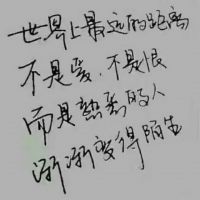 世界上最远的距离
不是爱，不是恨
而是熟悉的人
渐渐变得陌生